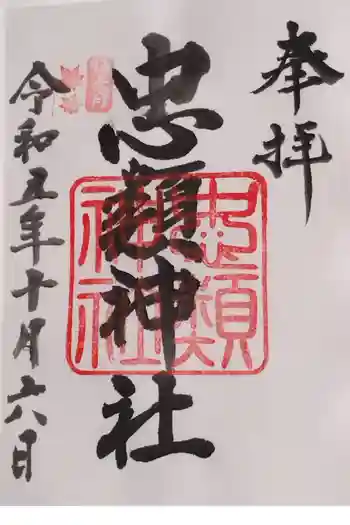 奉拝
忠頼神社
忠頼神社
令和五年十月六日